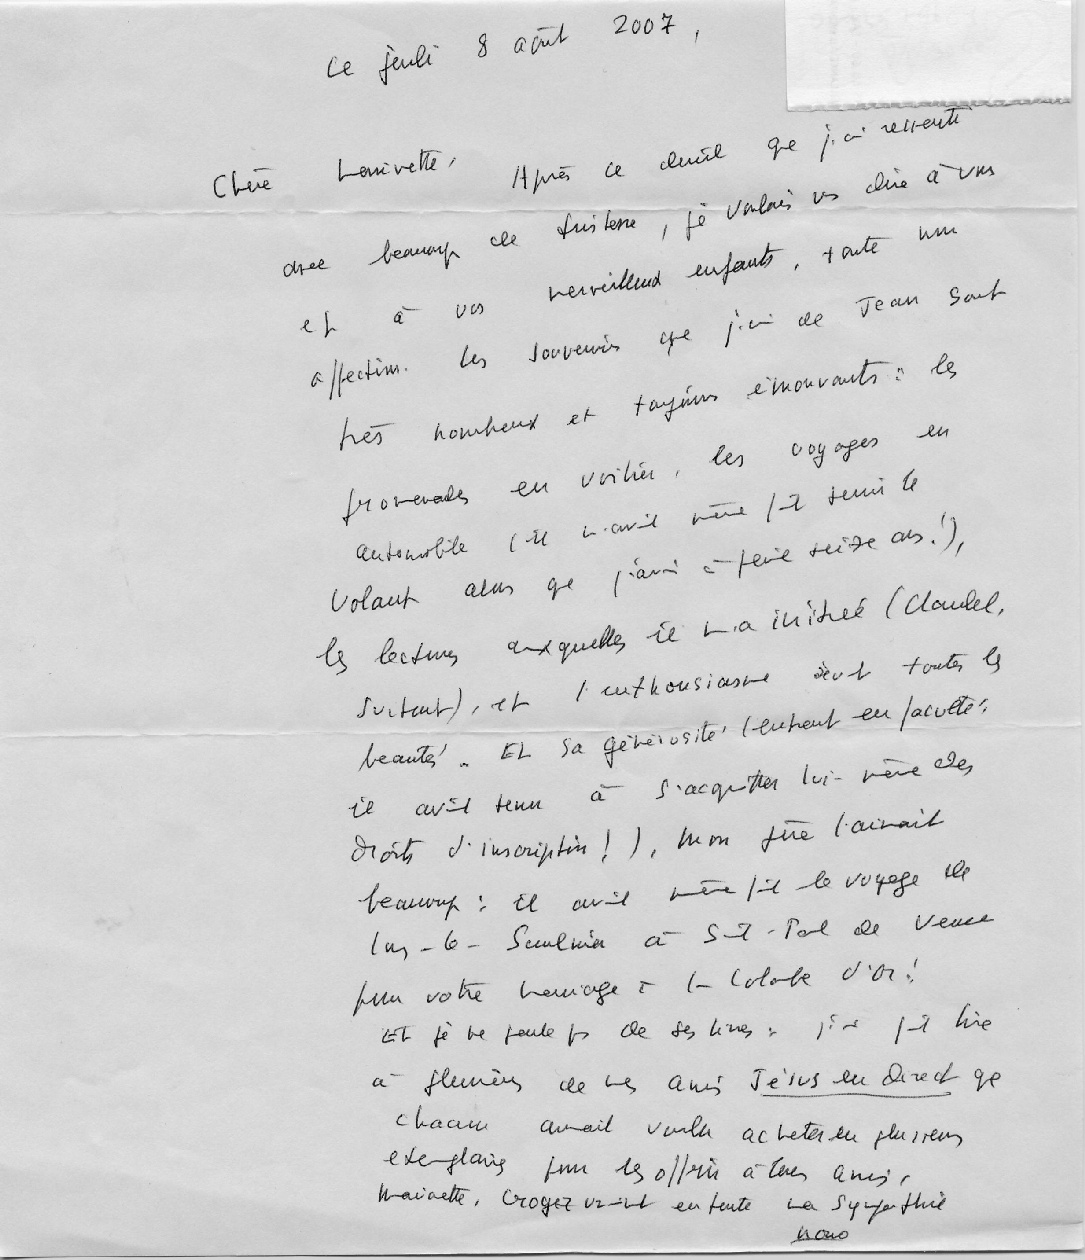 Le jeudi 8 août 2007,
Chère Après ce deuil que j'ai ressenti
avec beaucoup de tristesse, je voulais vs dire à vous
et à vos merveilleux enfants, toute mon
affection. Les souvenirs que j'ai de Jean sont
très nombreux et toujours émouvants : les
promenades en voilier, les voyages en
automobile (il m'avait même fait tenir le
volant alors que j'avais à peine seize ans !),
les lectures auxquelles il m'a initié (Claudel,
surtout), et l'enthousiasme devant toutes les
beautés. Et sa générosité (entrant en faculté,
il avait tenu à s'acquitter lui-même des
droits d'inscription !), mon père l'aimait
beaucoup : il avait même fait le voyage de
Lons-le-Saulnier à St-Paul de Vence
pour votre mariage à la Colombe d'Or !
Et je ne parle ps de ses livres : j'ai fait lire
à plusieurs de mes amis Jésus en direct que
chacun aurait voulu acheter en plusieurs
exemplaires pour les offrir à leurs amis.
Croyez vraiment en toute ma sympathie